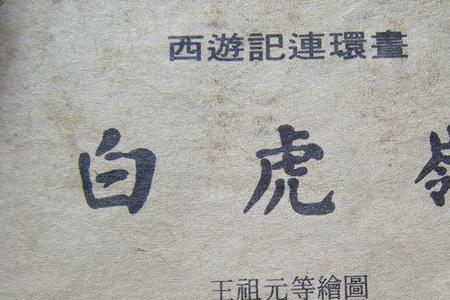 西遊記連環畫
白虎嶺
王祖元等繪圖